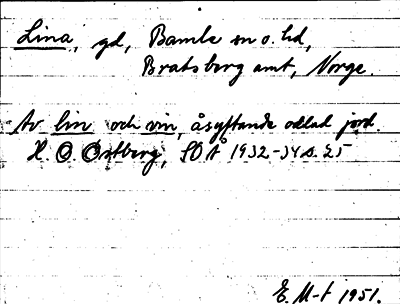 Lina, gd, Bamle sn o. hd,
Bratsberg amt, Norge.
Av lin och vin, åsyftande odlad jord.
H. O. Østberg, SOÅ 1932-34 s. 25
E. M-t 1951.